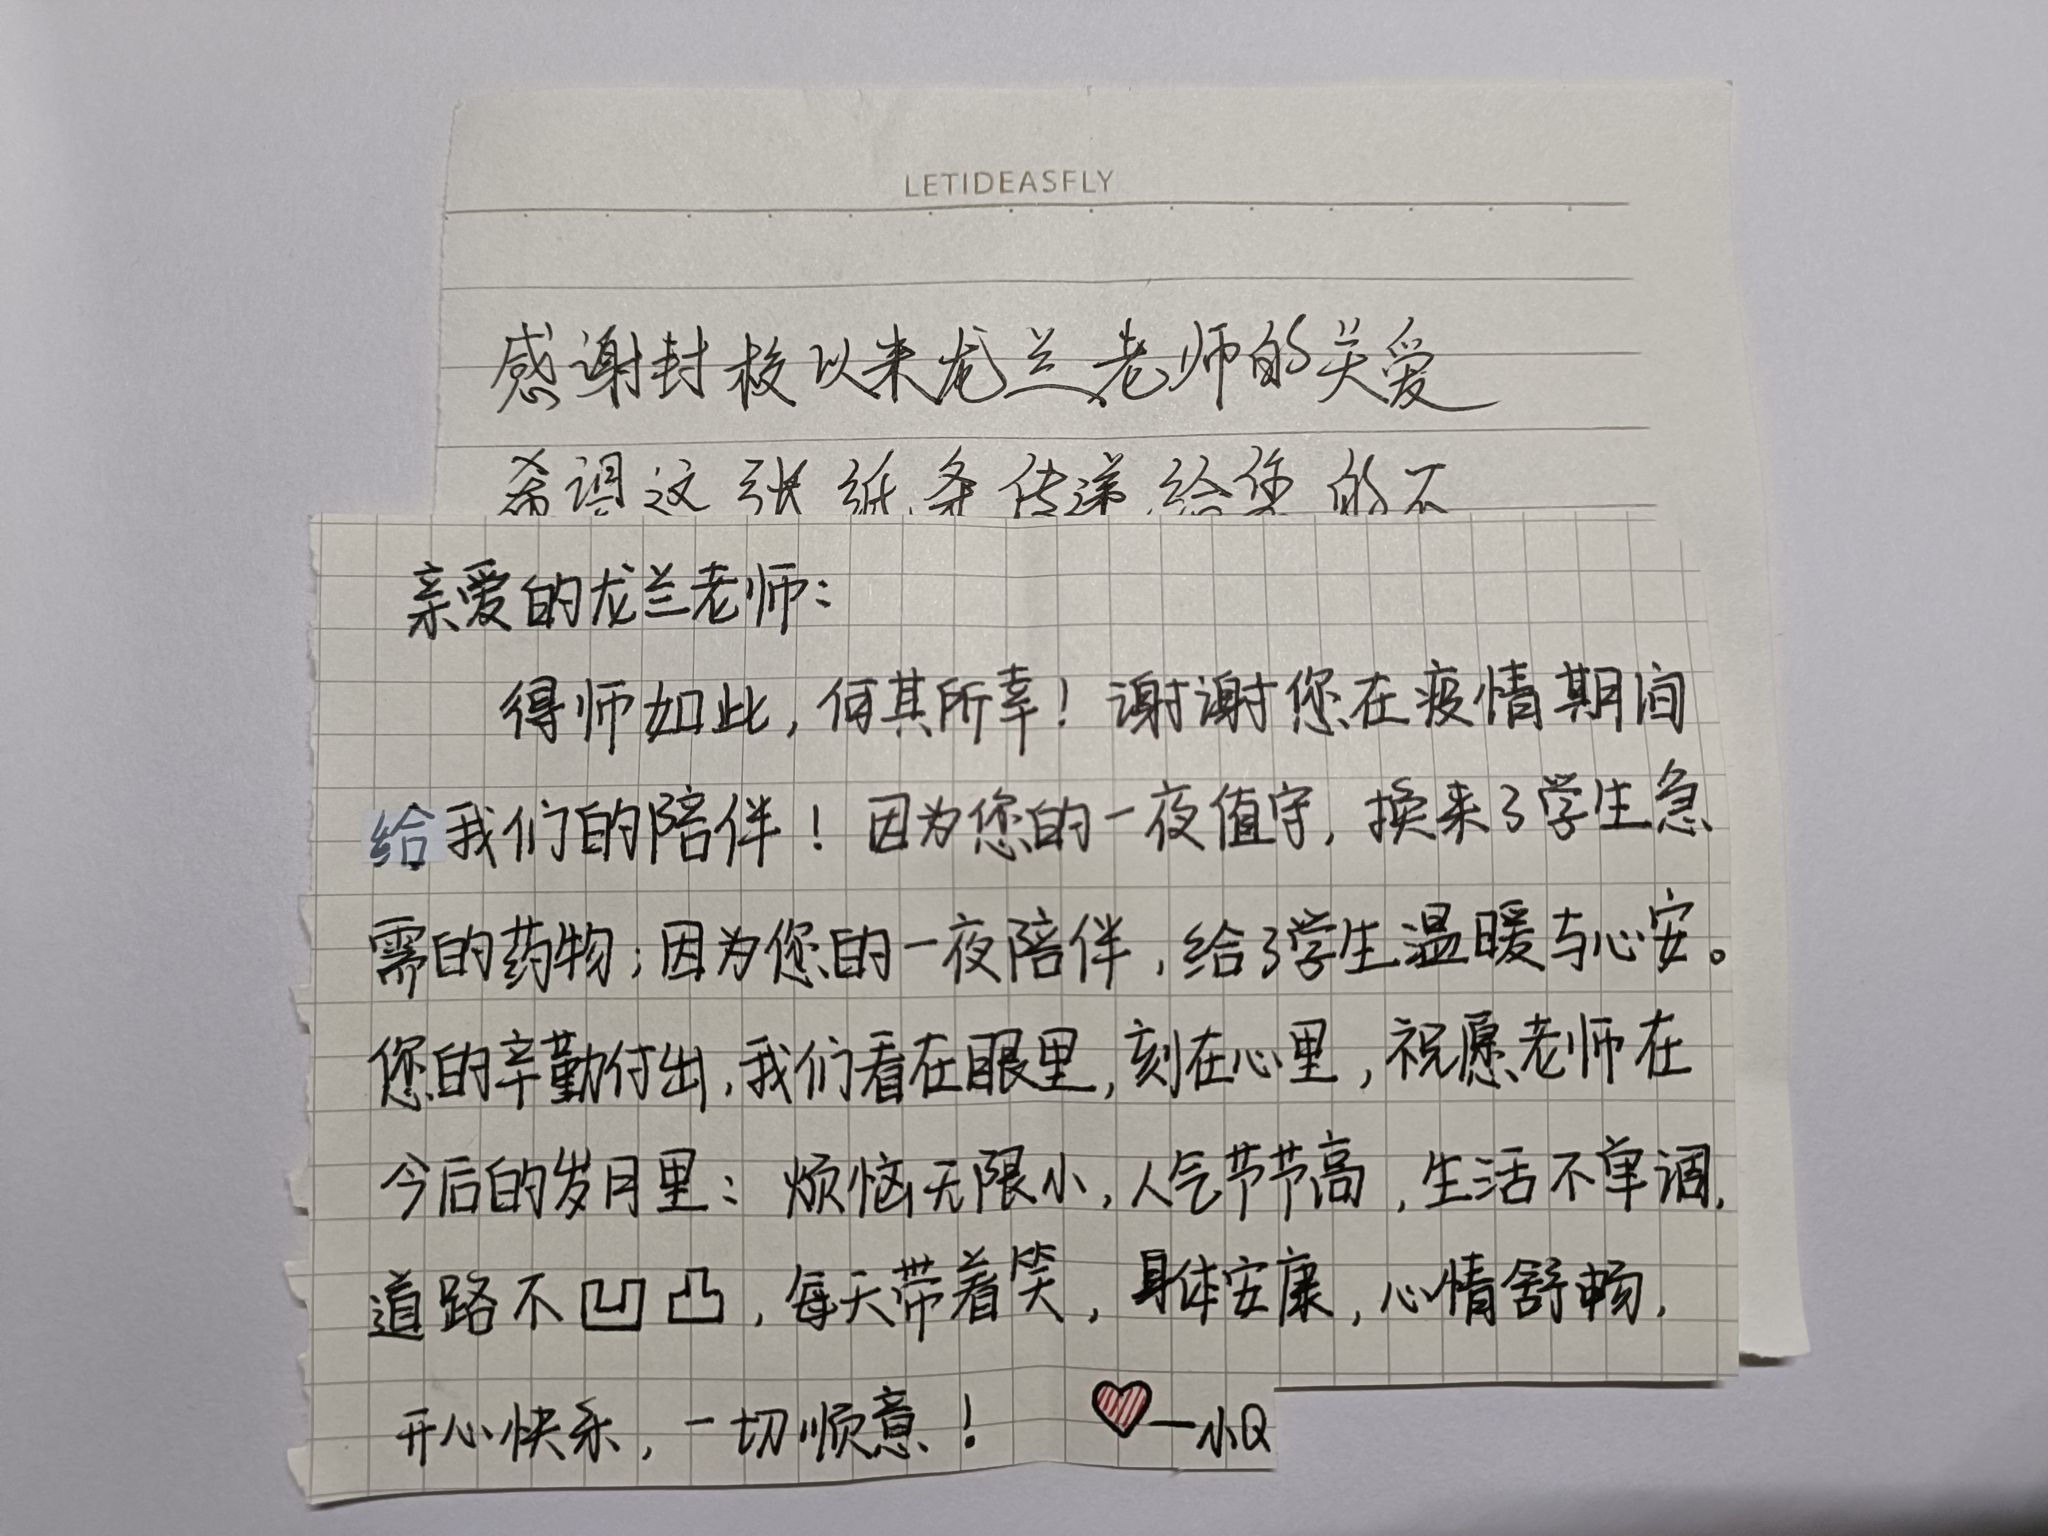 LETIDEASFLY
感谢封校以来龙兰老师的关爱
希望这张纸条传递给您的不
亲爱的龙兰老师：
得师如此，何其所幸！谢谢您在疫情期间
给我们的陪伴！因为您的一夜值守，换来了学生急
需的药物；因为您的一夜陪伴，给了学生温暖与心安。
您的辛勤付出，我们看在眼里，刻在心里，祝愿老师在
今后的岁月里：烦恼无限小，人气节节高，生活不单调，
道路不凹凸，每天带着笑，身体安康，心情舒畅，
开心快乐，一切顺意！ ——小Q